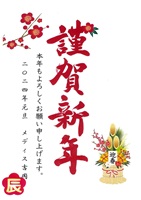 謹賀新年
本年もよろしくお願い申し上げます。
二〇二四年元旦
メディス古内
迎春
辰